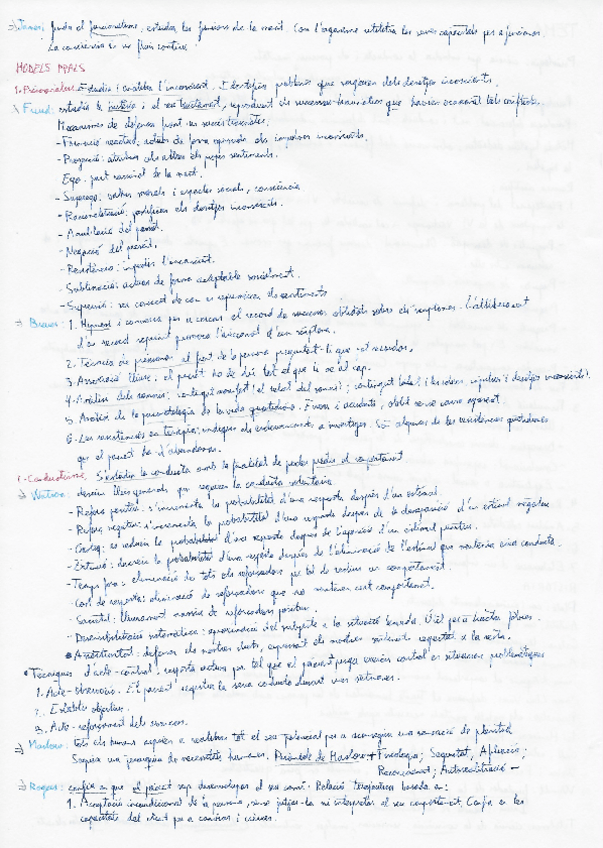 ⇒ James: funda el funcionalisme, estudia les funcions de la ment. Com l'organisme utilitza les seves capacitats per a funcionar.
La consciència és un flux continu
MODELS PPALS
1. Psicoanàlisi: Estudia i analitza l'inconscient. Identifica problemes que sorgeixen dels desitjos inconscients.
⇒ Freud: estudia la histèria i el seu tractament, reproduint els successos traumàtics que havien ocasionat els conflictes.
Mecanismes de defensa front
- Formació reactiva: actuar de forma oposada als impulsos inconscients.
- Projecció: atribuir als altres els propis sentiments.
Ego: part racional de la ment.
- Superego: valors morals i aspectes socials, consciència
- Racionalització: justificar els desitjos inconscients.
- del passat.
- Negació del present.
- Resistència: impedir l'inconscient.
- Sublimació: actuar de forma acceptable socialment.
- Supressió: ser conscient de com es reprimeixen els sentiments
⇒ Breuer: 1. Hipnosi: comença per a cercar el record de successos oblidats sobre els símptomes. L'alliberament
d'un record reprimit provoca l'eliminació d'un símptoma.
2. Tècnica de pressionar el front de la persona preguntant-li que recordava.
3. Associació lliure: el pacient ha de dir tot el que li ve al cap.
4. Anàlisi dels somnis: contingut manifest (el relat del somni); contingut latent (les idees, impulsos i desitjos inconscients).
5. Anàlisi de la psicopatologia de la vida quotidiana. Errors i accidents, oblit sense causa aparent.
6. Les resistències en teràpia: indiquen els a investigar. algunes de les resistències quotidianes
que el pacient ha d'abandonar.
1. Conductisme: S'estudia la conducta amb la finalitat de poder predir el comportament
⇒ Watson: descriu lleis generals per regular la conducta voluntària
- Reforç positiu: s'incrementa la probabilitat d'una resposta després d'un estímul.
- Reforç negatiu: s'incrementa la probabilitat d'una resposta després de la desaparició d'un estímul negatiu
- Càstig: es redueix la probabilitat d'una resposta després de l'aparició d'un estímul punitiu.
- Extinció: decreix la probabilitat d'una resposta després de l'eliminació de l'estímul que mantenia una conducta.
- Temps fora: eliminació de tots els reforçadors per tal de reduir un comportament.
- Cost de resposta: eliminació de reforçadors que no mantenen cert comportament.
- Sacietat: lliurament massiu de reforçadors positius.
- Desensibilització sistemàtica: aproximació del subjecte a la situació temuda. Útil per a tractar fòbies.
• Assertivitat: defensar els nostres drets, expressant els nostres sentiments respectant a la resta.
• Tècniques d'auto-control: resposta activa per tal que el pacient pugui exercir control en situacions problemàtiques
1. Auto-observació. El pacient registra la seva conducta durant unes setmanes.
2. Establir objectius.
3. Auto-reforçament dels avanços.
⇒ Maslow: tots els humans aspiren a realitzar tot el seu potencial per a aconseguir una sensació de plenitud
Segueix una jerarquia de necessitats humanes. Piràmide de Maslow → Fisiologia; Seguretat, Afiliació;
Reconeixement; Autorealització -
⇒ Rogers: confia en que el pacient sap desenvolupar el seu somni. Relació terapèutica basada en:
1. Acceptació incondicional de la persona, sense jutjar-la ni interpretar el seu comportament. Confia en les
capacitats del client per a canviar i créixer.